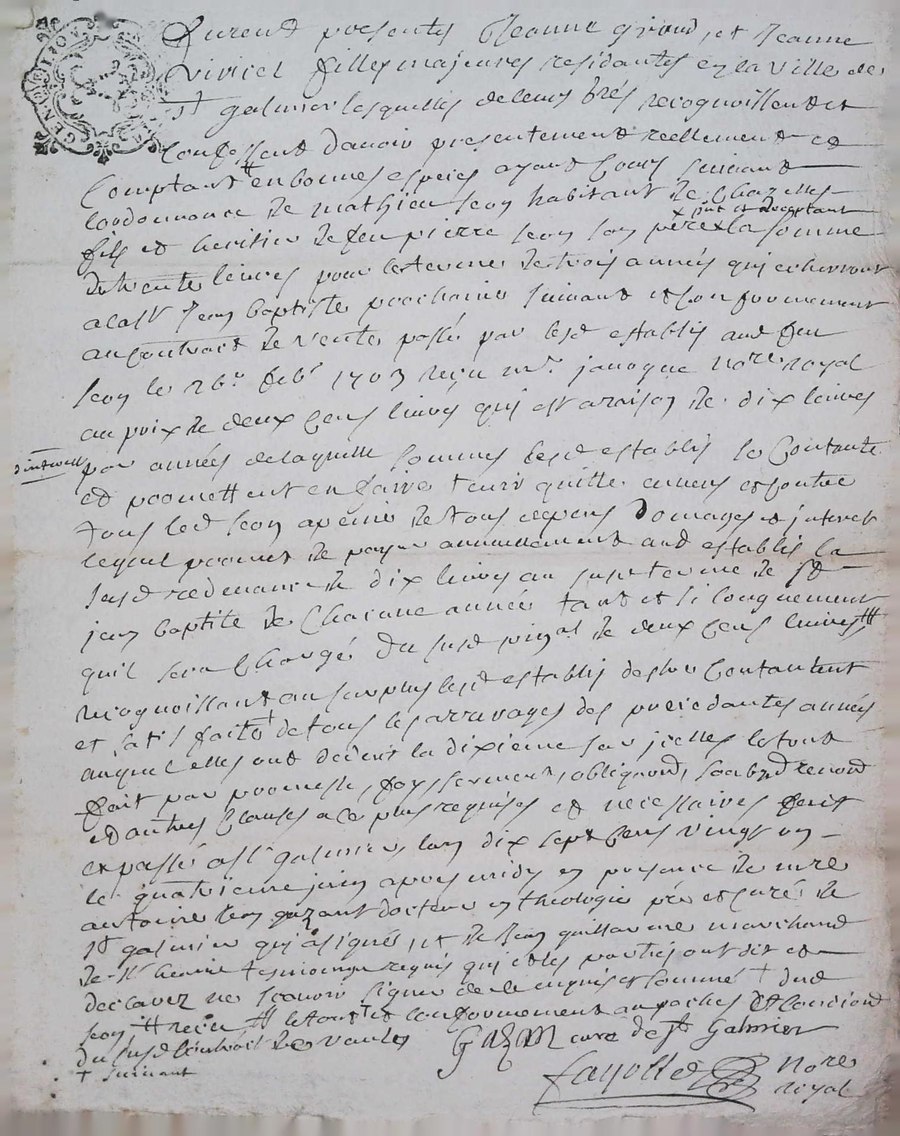 GEN
furent presentes Jeanne girard, et Jeanne
filles majeures residantes en la ville de
st galmier lesquelles de leurs grés recognoissent et
confessent d'avoir presentement reellement et
comptant # en bonnes especes ayant cours suivant
lordonnance de mathieu habitant de Chazelles
fils et heritier de feu pierre son pere x la somme
x pnt et acceptant
de trente livres pour le terme de trois années qui echerront
a la st Jean baptiste prochaine suivant et conformement
au contract de vente passé par lesd establis aud feu
le 26e feb. 1703 reçu me janoque nore royal
au prix de deux cens livres qui est a raison de dix livres
par années de laquelle somme lesd establis se contante
et promettent en faire tenir quitte envers et contre
tous led a peine de tous despens domages et interest
lequel promet de payer annuellement aud establis la
susd redevance de dix livres au susd terme de st
jean baptiste de chacune année tant et si longuement
quil sera chargé du susd de deux cens livres #
recognoissant au surplus lesd establis destre contantent
et satisfaites de tous les arrerages des precedantes années
auquel elles ont deduit la dixieme sur icelles le tout
fait par promesse, foy, serment, obligaons, renond
et autres clauses a ce plus requises et necessaires fait
et passé a st galmier, lan dix sept cens vingt un
le quatrieme juin apres midy en presence de mre
antoine docteur en theologie pre et curé de
st galmier qui a signé, et de Jean guillaume marchand
de st tesmoings requis qui et les parties ont dit et
declarez ne scavoir signer de ce enquis et sommé † dud
# reçu # le tout et conformement au paches et condiond
du susd contract de vantes
† suivant
curé de st Galmier
nore
royal